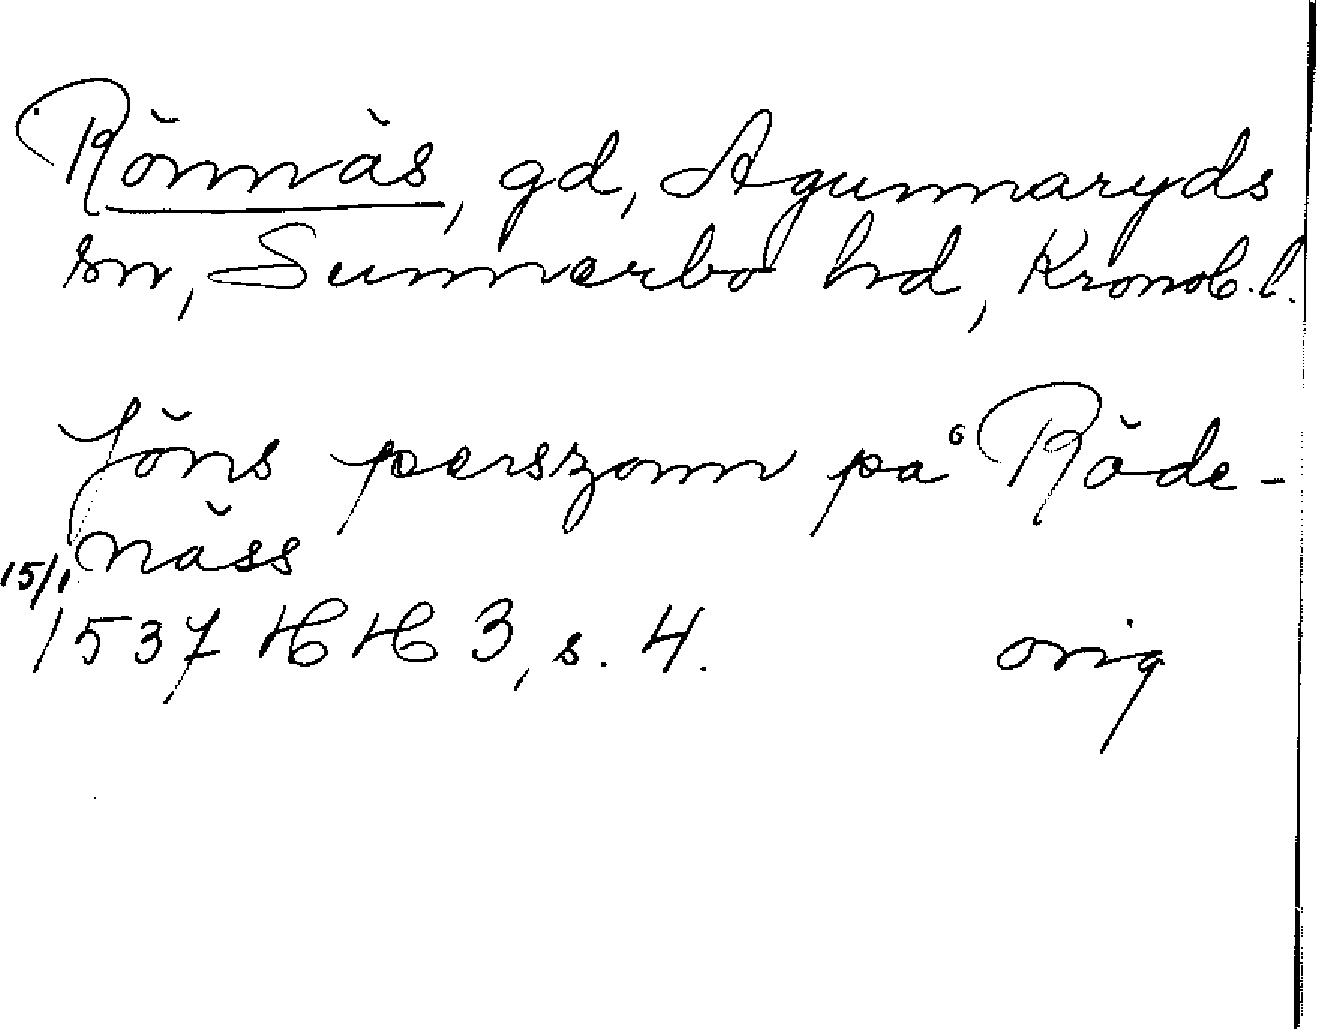 Rönnäs, gd, Agunnaryds
sn, Sunnerbo hd, Kronob. l.
Jöns perszonn på Räde-
näss
15/1
1537 HH 3, s. 4. orig